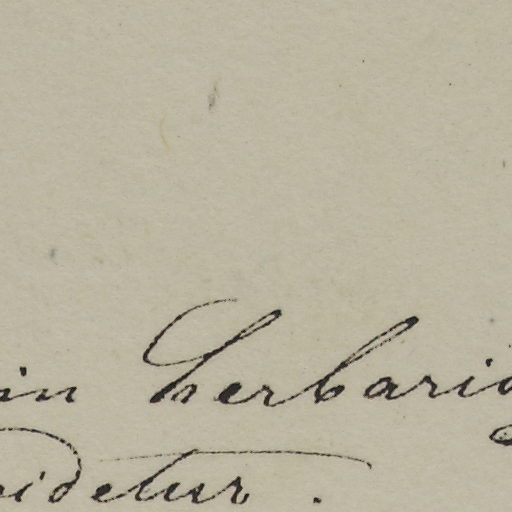 in herbario
videtur.